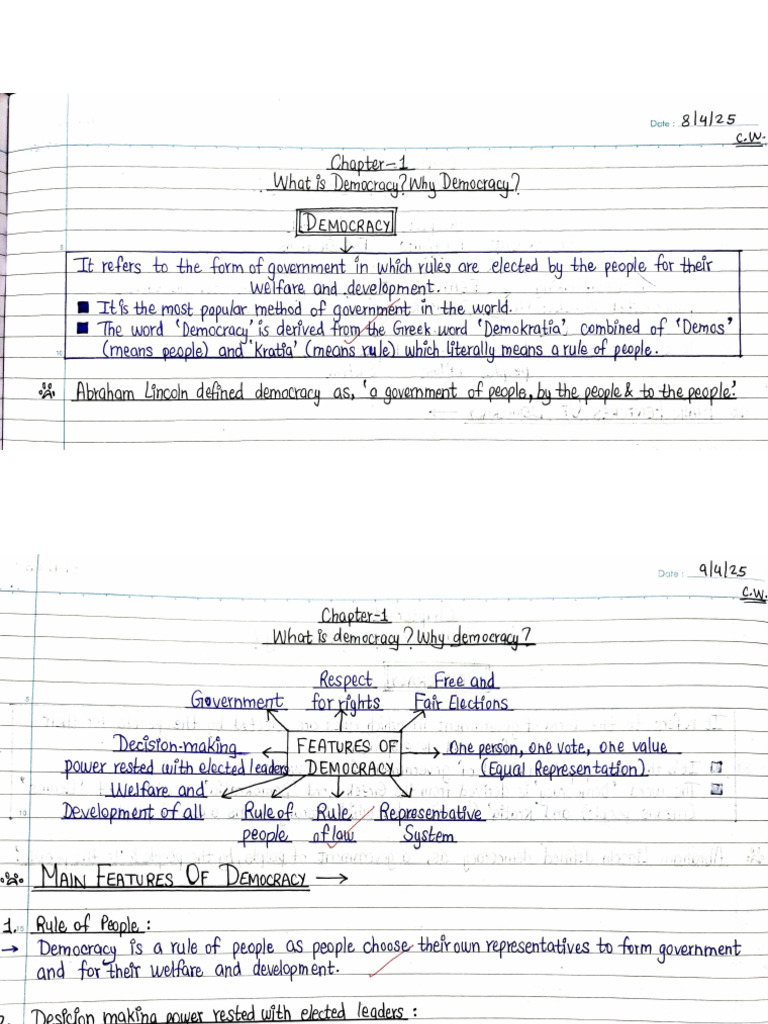 Date: 8/4/25
C.W.
Chapter-1
What is Democracy? Why Democracy?
DEMOCRACY
It refers to the form of government in which rules are elected by the people for their
welfare and development.
It is the most popular method of government in the world.
The word 'Democracy' is derived from the Greek word 'Demokratia', combined of 'Demos'
(means people) and 'Kratia' (means rule) which literally means a rule of people.
Abraham Lincoln defined democracy as, 'a government of people, by the people & to the people.'
Date: 9/4/25
C.W.
Chapter-1
What is democracy? Why democracy?
Respect Free and
Government for rights Fair Elections
Decision-making FEATURES OF One person, one vote, one value
power rested with elected leaders DEMOCRACY (Equal Representation)
Welfare and
Development of all Rule of Rule Representative
people of law System
MAIN FEATURES OF DEMOCRACY →
1. Rule of People :
→ Democracy is a rule of people as people choose their own representatives to form government
and for their welfare and development.
2. Desicion making power rested with elected leaders :